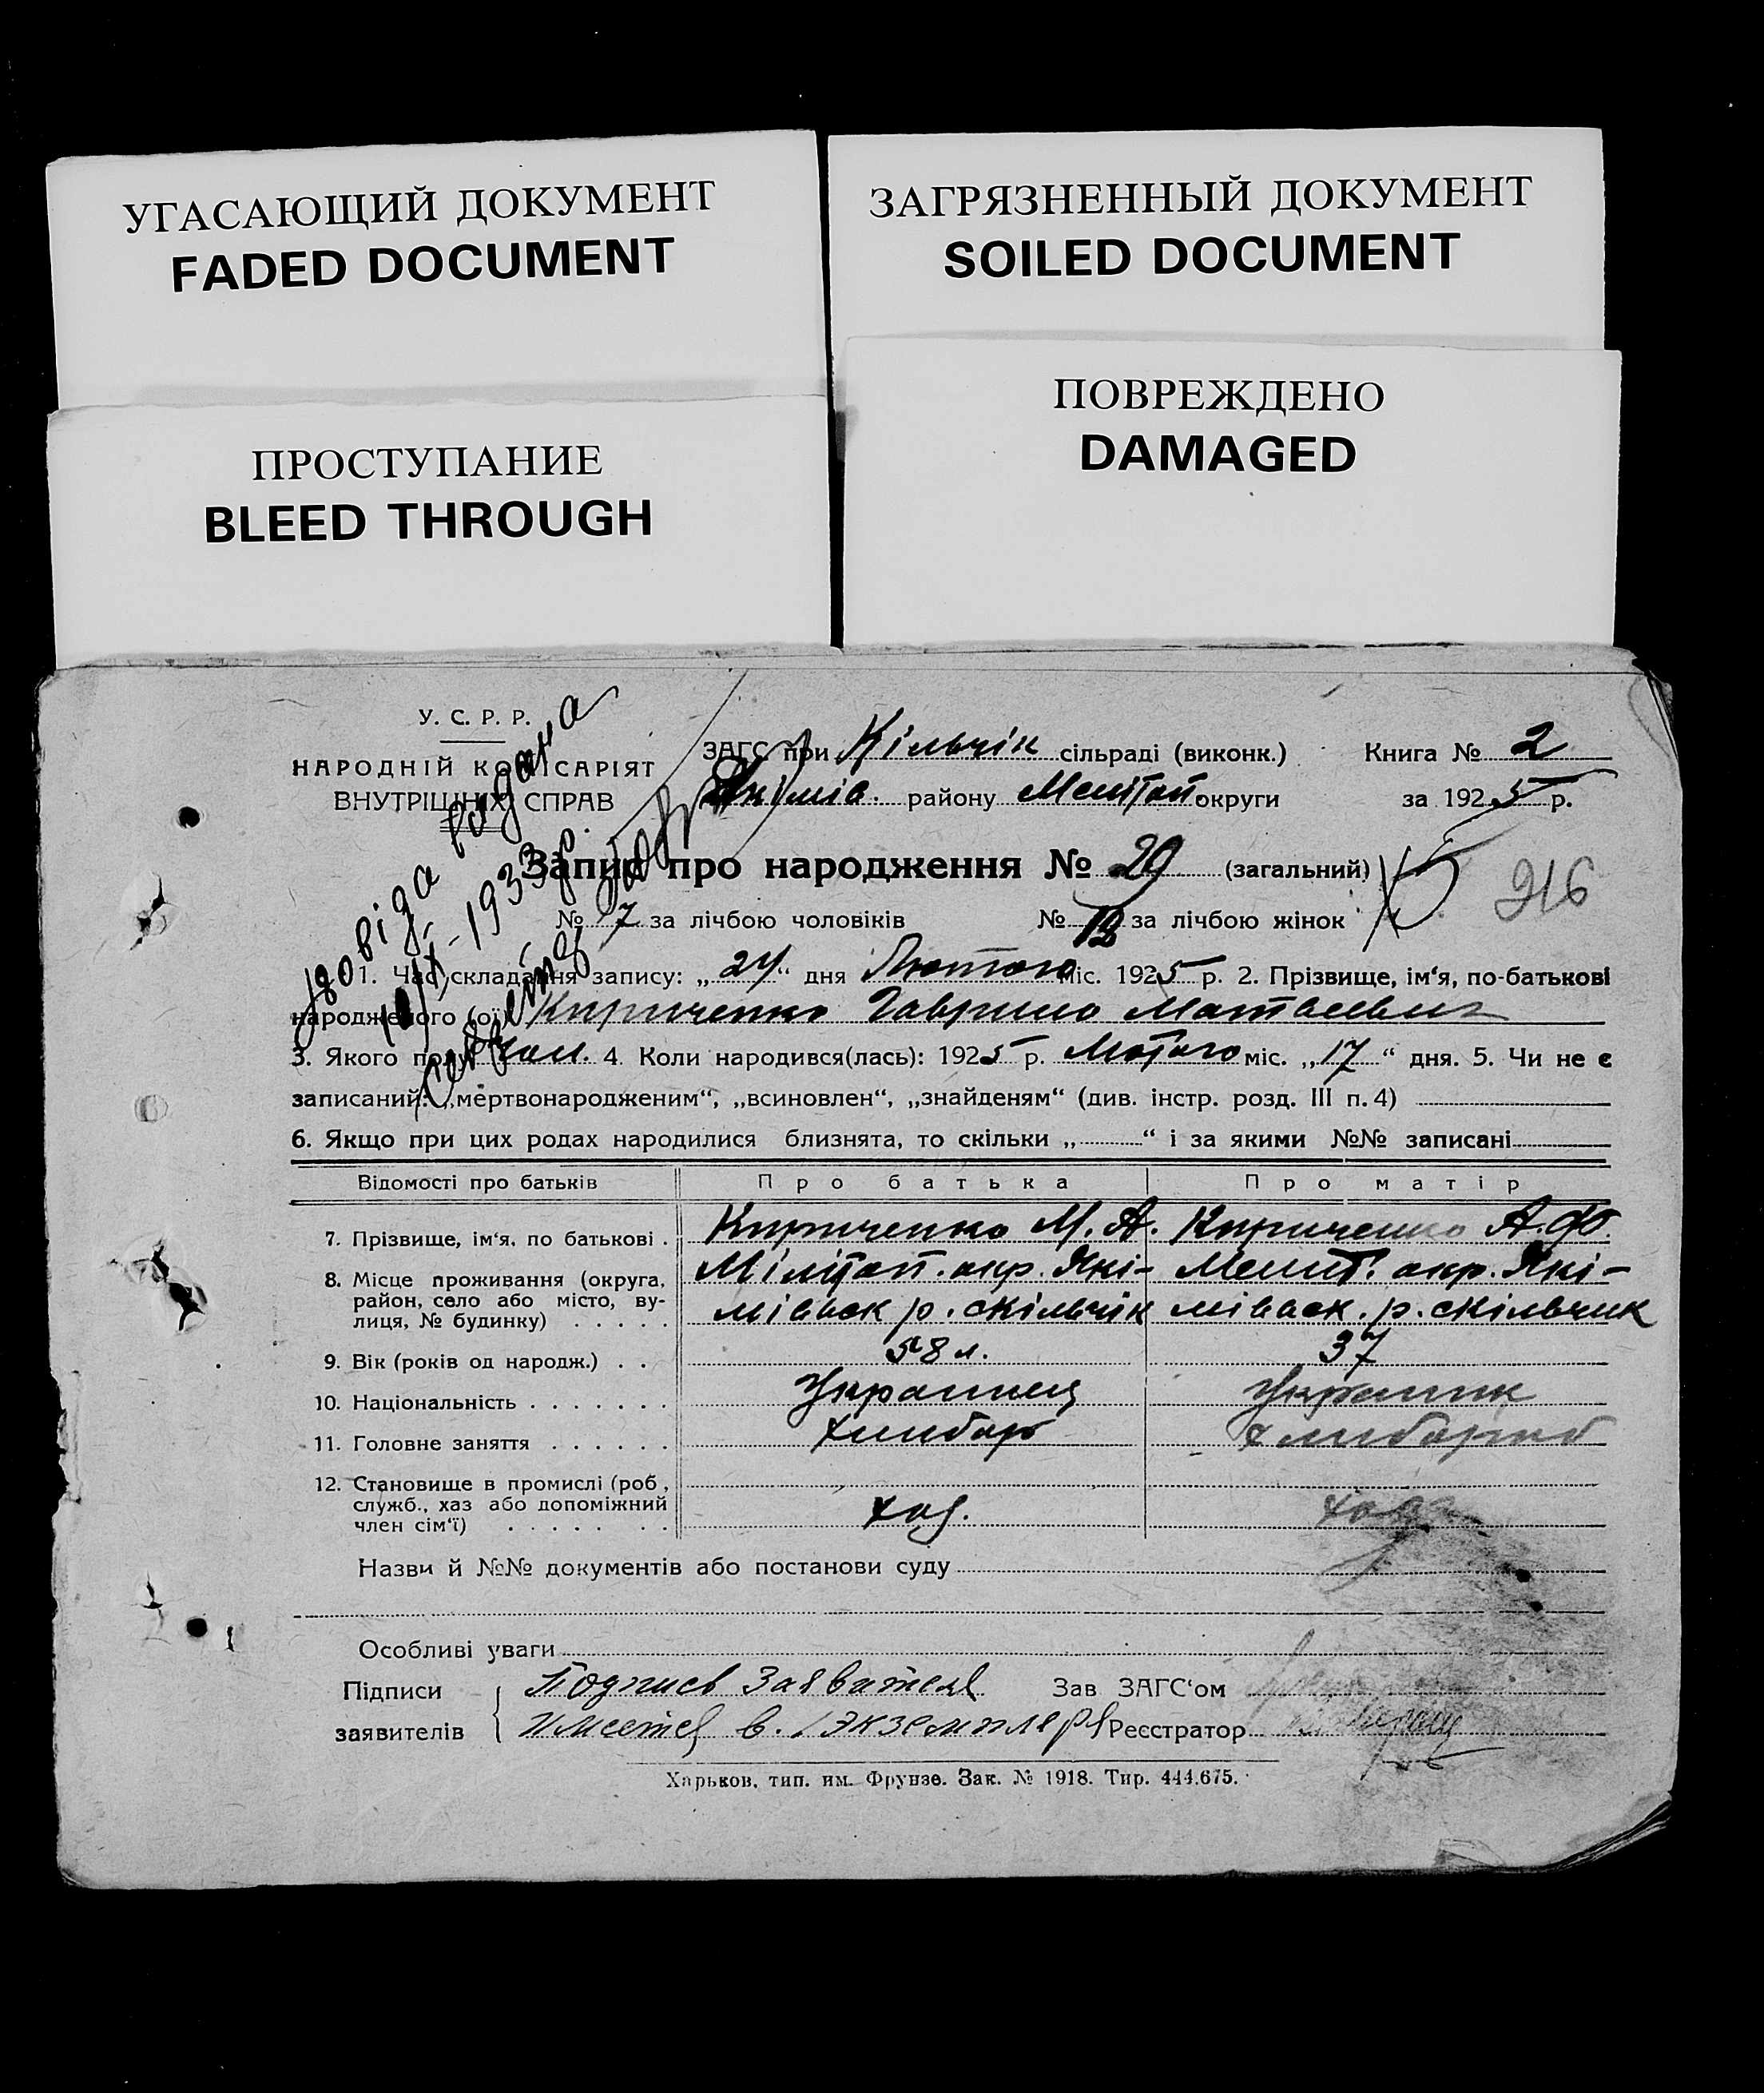 УГАСАЮЩИЙ ДОКУМЕНТ
FADED DOCUMENT
ЗАГРЯЗНЕННЫЙ ДОКУМЕНТ
SOILED DOCUMENT
ПРОСТУПАНИЕ
BLEED THROUGH
ПОВРЕЖДЕНО
DAMAGED
У. С. Р. Р.
НАРОДНІЙ КОМІСАРІЯТ
ВНУТРІШНІХ СПРАВ
ЗАГС при Кільчік сільраді (виконк.) Книга № 2
Якімів. району Мелітоп. округи за 1925 р.
Запис про народження № 29 (загальний)
216
№ 17 за лічбою чоловіків № за лічбою жінок
1. Час складання запису: „24“ дня Лютого міс. 1925 р. 2. Прізвище, ім‘я, по-батькові
народженого (ої) Кириченко Гаврило Матвеевич
3. Якого полу чол. 4. Коли народився(лась): 1925 р. Лютого міс. „17“ дня. 5. Чи не є
записаний: „мертвонародженим“, „всиновлен“, „знайденям“ (див. інстр. розд. III п. 4)
6. Якщо при цих родах народилися близнята, то скільки „ “ і за якими №№ записані
видана
1933 р.
Відомості про батьків Про батька Про матір
7. Прізвище, ім‘я, по батькові . Кириченко М. А. Кириченко А. Ф.
8. Місце проживання (округа, Мілітоп. окр. Які- Мелит. окр. Які-
район, село або місто, ву- мівськ р. с Кільчік мівськ. р. с Кільчик
лиця, № будинку) . . . . .
9. Вік (років од народж.) . . 58 л. 37
10. Національність . . . . . . . Украинец Украинк
11. Головне заняття . . . . . . Хлибор
12. Становище в промислі (роб,
служб., хаз або допоміжний хаз.
член сім‘ї) . . . . . . .
Назви й №№ документів або постанови суду
Особливі уваги
Підписи Подпись Заявителя Зав ЗАГС‘ом
заявителів Имеется в. 1 экземпляр Реєстратор
Харьков, тип. им. Фрунзе. Зак. № 1918. Тир. 444.675.